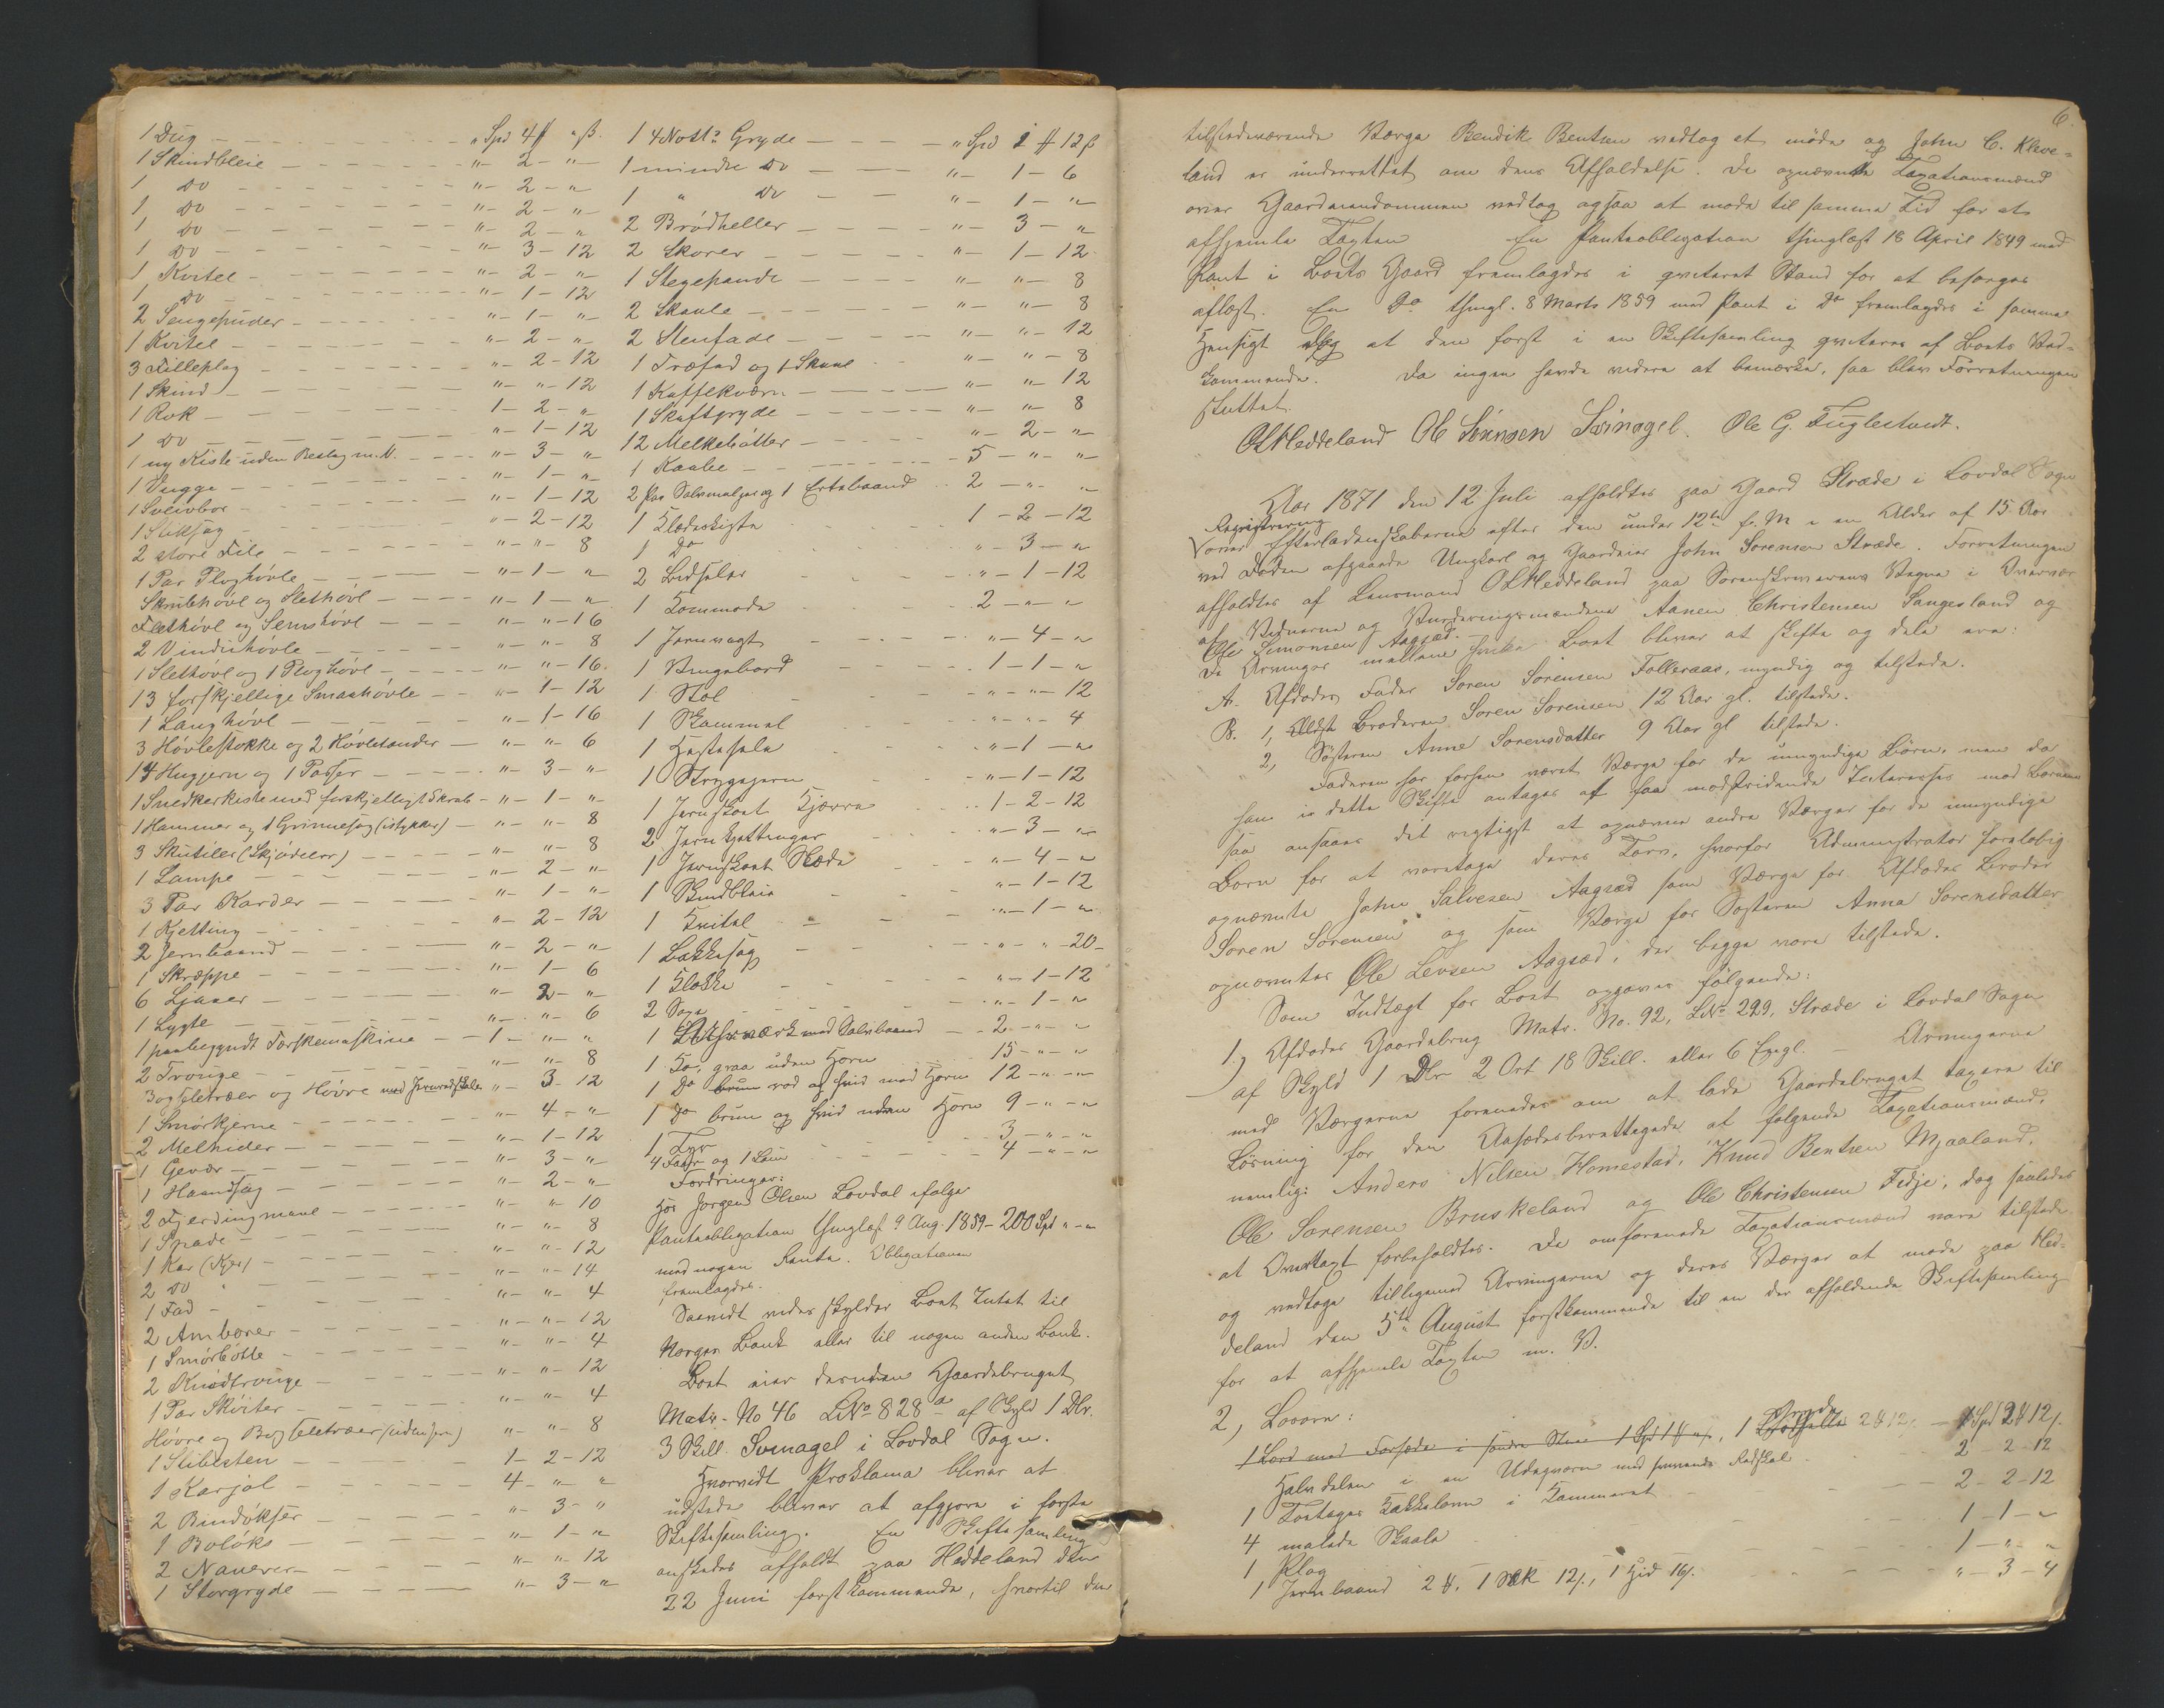 1 Dug — — — " Spd 4 ₰ " ß.
1 Skindbleie — — "- 2 - "-
1 Do — — "- 2 - "
1 Do — — "- 2 - "
1 Do — — "- 2 - "
1 Do — — "- 3 - 12
1 Kvitel — — "- 2 - "-
1 Do — — "- 1 - 12
2 Sengepuder — — "- 1 - "-
1 Kvitel — — "- 2 - "
3 Filleplag — — "- 2 - 12
1 Skind — — "- "- 12
1 Rok — — 1 - 2 - "
1 Do — — "- 1 - 12
1 ny Kiste uden Beslag m. V. — "- 3 - "
1 Vugge — — "- 1 - "
1 Sveivbor — — "- 1 - 12
1 Stiksag — — "- 2 - 12
2 store File — — "- "- 8
1 Par Ploghövle — — "- 1 - "
Skrubhövl og Slethövl — — "- 1 - "
Flethövl og Semshövl — — "- "- 16
2 Vindushövle — — "- "- 8
1 Slethövl og 1 Ploghövl — — "- "- 16
13 forskjellige Smaahövle — — "- 1 - 12
1 Langhövl — — "- 1 - 16
3 Hövlestokke og 2 Hövletander — "- "- 6
14 Hugjern og 1 Passer — — "- 3 - "
1 Snedkerkiste med forskjelligt Skrab - "- 1 - "
1 Hammer og 1 Grinnesag (istykker) — "- "- 8
3 Skutiler (Skjödeler) — — "- "- 8
1 Lampe — — "- 2 - "
3 Par Karder — — "- 1 - "
1 Kjetting — — "- 2 - 12
2 Jernbaand — — "- 2 - "
1 Skræppe — — "- 1 - 6
6 Ljaaer — — "- 2 - "
1 Lygte — — "- "- 6
1 paabegyndt Tærskemaskine — 1 - " - "
2 Trouge — — "- "- 8
3 og Seletræer og Hövre med Jernredskaber "- 3 - 12
1 Smörkjerne — — "- 4 - "
2 Melhider — — "- 1 - 12
1 Gevær — — "- 3 - "
1 Haandsag — — "- 2 - "
2 Fjerdingmaal — — "- "- 10
1 Spade — — "- "- 8
1 Kar (Kjer) — — "- "- 12
2 Do " — — "- "- 14
1 Fad — — "- "- 4
2 Ambærer — — "- "- 12
1 Smörbötte — — "- "- 4
2 Knödtrouge — — "- "- 12
1 Par Skviter — — "- "- 4
Hövre og Bogseletræer (uden Jern) "- "- 8
1 Slibesten — — 1 - 2 - 12
1 Karjol — — 4 - " - "
2 Bindökser — — "- 3 - "
1 Bolöks — — "- 1 - "
2 Naverer — — "- "- 12
1 Storgryde — — "- 3 - "
1 4 Notts Gryde — — " Spd 1 ₰ 12 ß
1 mindre Do — — "- 1 - 6
1 " Do — — "- 1 - "
2 Brödheller — — "- 3 - "
2 Skorer — — "- 1 - 12
1 Stegepande — — "- "- 8
2 Skaale — — "- "- 8
2 Stenfade — — "- "- 12
1 Træfad og 1 Skaal — "- "- 8
1 Kaffekværn — — "- "- 12
1 Skaftgryde — — "- "- 8
12 Melkebötter — — "- 2 - "
1 Kaabe — — 5 - "- "
2 Par Sølvmaljer og 1 Ertebaand — 2 - " - "
1 Klædeskiste — 1 - 2 - 12
1 Do — "- 3 - "
2 Bidseler — "- 1 - 12
1 Kommode — 2 - " - "
1 Jernvægt — "- 4 - "
1 Vingebord — 1 - 1 - "
1 Stol — "- "- 12
1 Skammel — "- "- 4
1 Hestesele — "- 1 - "
1 Strygejern — "- 1 - 12
1 Jernskoet Kjærre — 1 - 2 - 12
2 Jernkjettinger — "- 3 - "
1 Jernskoet Slæde — "- 4 - "
1 Skindbleie — "- 1 - 12
1 Kvitel — "- 1 - "
1 Bakkesag — "- "- 20 -
1 Klokke — "- 1 - 12
2 Sage — "- 1 - "
1 Uhrværk med Sølvbaand — 2 - " - "
1 Ko, graa uden Horn 15 - " - "
1 Do brun rød og hvid med Horn 12 - " - "
1 Do brun og hvid uden Horn 9 - " - "
1 Tyr 3 - " - "
4 Faar og 1 Lam 4 - " - "
Fordringer:
hos Jørgen Olsen Lovdal ifølge
Panteobligation thinglæst 9 Aug 1859 - 200 Spd " - "
med nogen Rente. Obligationen
fremlagdes.
Saavidt vides skylder Boet Intet til
Norges Bank eller til nogen anden Bank.
Boet eier desuden Gaardebruget
Matr. No 46 LNo 828 a af Skyld 1 Dlr.
3 Skill. Svinagel i Lovdal Sogn.
Hvorvidt Proklama bliver at
udstede bliver at afgjøre i første
Skiftesamling. En Skiftesamling
ønskedes afholdt paa Heddeland den
22 Juni førstkommende, hvortil den
6.
tilstedeværende Værge Bendik Bentsen vedtog et møde og John C. Kleve-
land er underrettet om dens Afholdelse. De opnævnte Taxationsmænd
over Gaardeiendommen vedtog ogsaa at møde til samme Tid for at
afhjemle Taxten En Panteobligation thinglæst 18 April 1849 med
Pant i Boets Gaard fremlagdes i qviteret Stand for at besørges
aflæst. En Do thingl. 8 Marts 1859 med Pant i Do fremlagdes i samme
Hensigt dog at den først i en Skiftesamling qviteres af Boets Ved-
kommende. Da ingen havde videre at bemærke, saa blev Forretningen
sluttet.
O Heddeland Ole Sörensen Svinagel. Ole G. Fuglestvedt.
Aar 1871 den 12 Juli afholdtes paa Gaard Stræde i Lovdal Sogn
Registrering
over Efterladenskaberne efter den under 12te f. M i en Alder af 15 Aar
ved Døden afgaaede Ungkarl og Gaardeier John Sørensen Stræde. Forretningen
afholdtes af Lensmand O Heddeland paa Sorenskriverens Vegne i Overvær
af Vidnerne og Vurderingsmændene Aanen Christensen Sangesland og
Ole Simonsen Aagsæd.
De Arvinger mellem hvilke Boet bliver at skifte og dele ere:
A. Afdødes Fader Søren Sørensen Folleraas, myndig og tilstede.
B. 1, Ældste Broderen Søren Sørensen 12 Aar gl. tilstede.
2, Søsteren Anne Sørensdatter 9 Aar gl tilstede.
Faderen har forhen været Værge for de umyndige Børn, men da
han i dette Skifte antages at faa modstridende Interesser med Børnene
saa ansaaes det rigtigst at opnævne andre Værger for de umyndige
Børn for at varetage deres Tarv, hvorfor Administrator foreløbig
opnævnte John Salvesen Aagsæd som Værge for Afdødes Broder
Søren Sørensen og som Værge for Søsteren Anna Sørensdatter
opnævntes Ole Levsen Aagsæd, der begge vare tilstede.
Som Indtægt for Boet opgaves følgende:
1.) Afdødes Gaardebrug Matr. No. 92, LNo 229, Stræde i Lovdal Sogn
af Skyld 1 Dlr 2 Ort 18 Skill. eller 6 Engl. — Arvingerne
med Værgerne forenedes om at lade Gaardebruget taxere til
Løsning for den Aasædesberettigede af følgende Taxationsmænd,
nemlig: Anders Nilsen Homestad, Knud Bentsen Mjaaland,
Ole Sørensen Bruskeland og Ole Christensen Fidje, dog saaledes
at Overtaxt forbeholdtes. De omforenede Taxationsmænd vare tilstede
og vedtoge tilligemed Arvingerne og deres Værger at møde paa Hed-
deland den 5te August førstkommende til en der afholdende Skiftesamling
for at afhjemle Taxten m. V.
2, Løsøre:
1 Bord med Forsæde i søndre Stue 1 Spd 1 ₰ " ß, 1 Gryde 2 ₰ 12 ß. — 1 Spd 2 ₰ 12 ß.
Halvdelen i en Udegværn med henværende Redskab 2 - 2 - 12
1 Toetages Kakkelovn i Kammeret 2 - 2 - 12
4 malede Skaale 1 - 1 - "
1 Plog 1 - " - "
1 Jernbaand 2 ₰, 1 Sæk 12 ß., 1 Hid 16 ß. "- 3 - 4